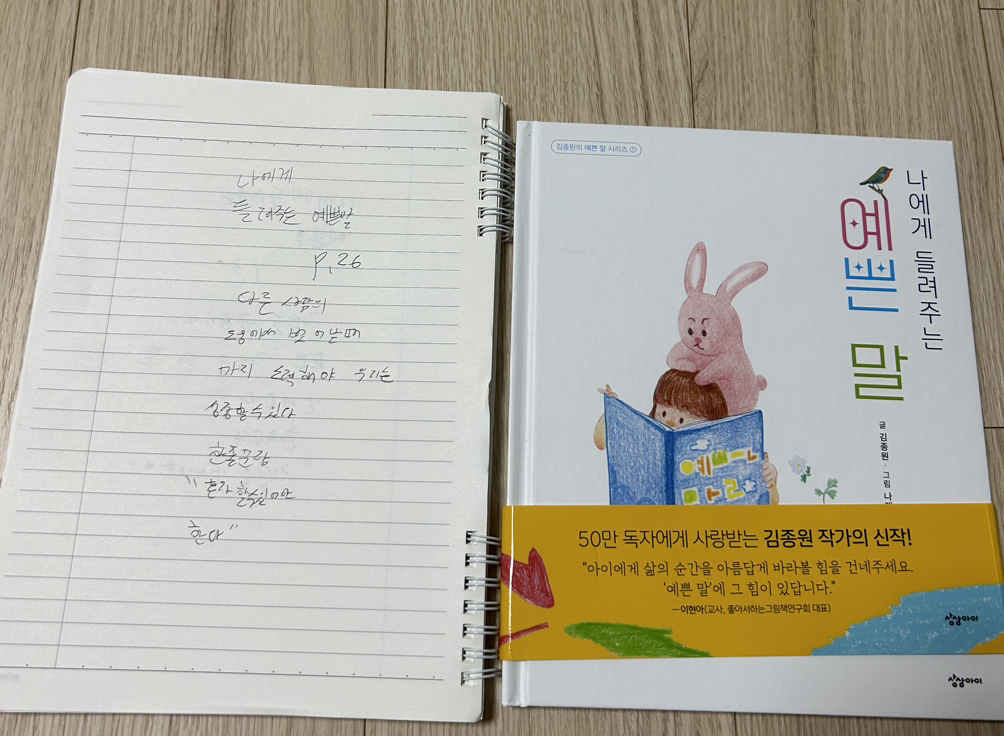 나에게
들려주는 예쁜말
P.26
다른 사람의
도움에서 벗어날때
까지 노력해야 우리는
성장할수있다
한줄문장
"혼자 할수있어야
한다"
김종원의 예쁜 말 시리즈 ①
나에게 들려주는
예쁜 말
글 김종원 · 그림 나래
예쁘ㄴ
마ㄹ
50만 독자에게 사랑받는 김종원 작가의 신작!
"아이에게 삶의 순간을 아름답게 바라볼 힘을 건네주세요.
'예쁜 말'에 그 힘이 있답니다."
—이현아(교사, 좋아서하는그림책연구회 대표)
상상아이
상상아이